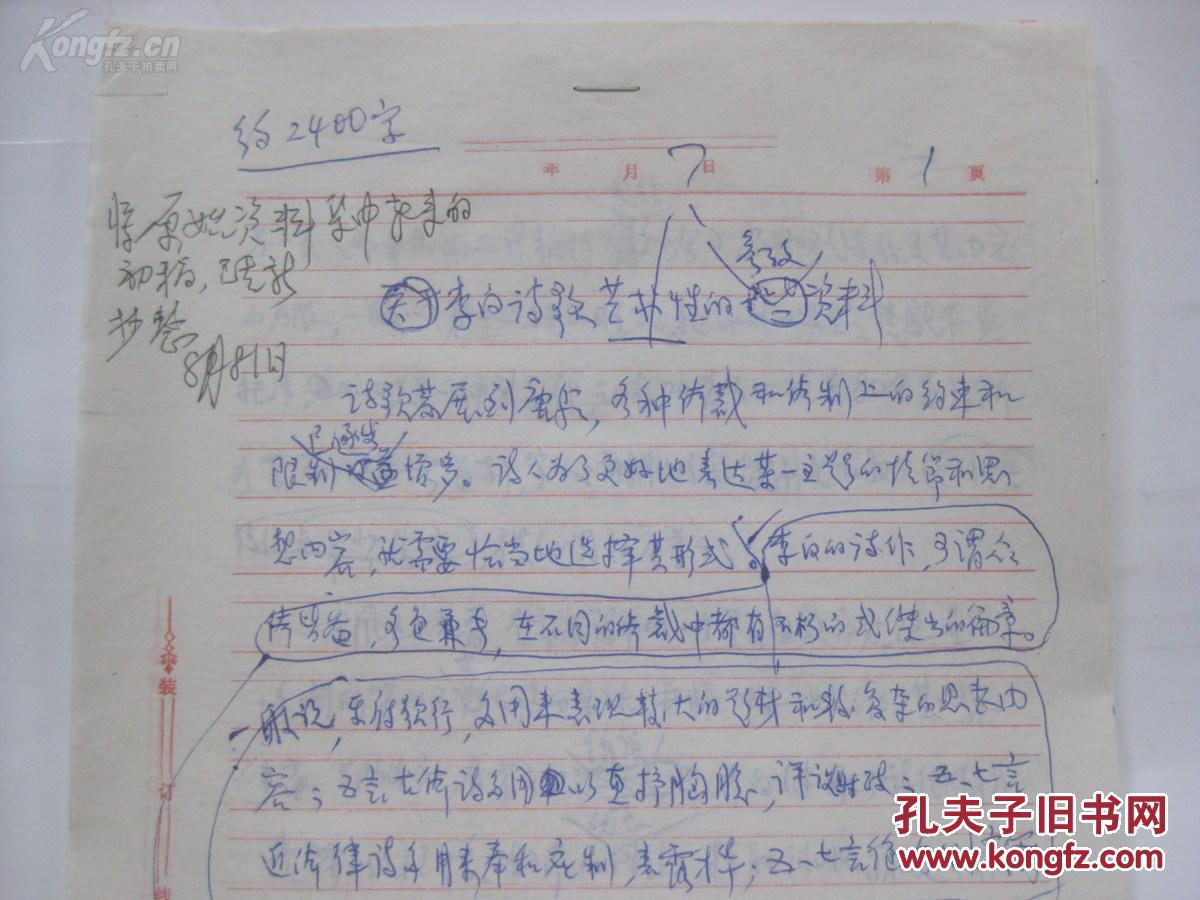 Kongfz.cn
孔夫子拍卖网
约2400字
年 月 7 日 第 1 页
将原始资料集中起来的
初稿,已重新
抄整
8月21日
参考
关于李白诗歌艺术性的一些资料
诗歌发展到唐代,各种体裁和体制上的约束和
逐步
限制增多。诗人为了更好地表达某一主题的情节和思
想内容,就需要恰当地选择其形式。李白的诗作,可谓众
体皆备,各色兼专,在不同的体裁中都有不朽的或杰出的篇章。
一般说,乐府歌行,多用来表现较大的题材和较复杂的思想内
容;五言古体诗多用以直抒胸臆,详议时政;五、七言
近体律诗多用来奉和应制,表露才华;五、七言绝
装
订
线
孔夫子旧书网
www.kongfz.com